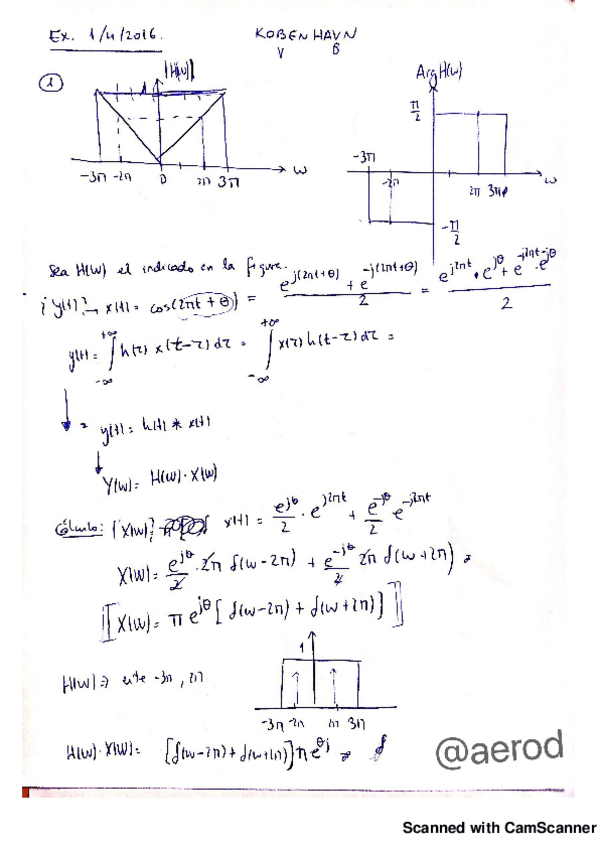 Ex. 1/4/2016.
KOBENHAVN
V B
1
|H(w)|
-3π -2π 0 2π 3π w
Arg H(w)
π/2
-3π
-2π 2π 3π w
-π/2
Sea H(w) el indicado en la figura.
¿ y(t)? → x(t) = cos(2πt + θ) = (e^{j(2πt+θ)} + e^{-j(2πt+θ)})/2 = (e^{j2πt} · e^{jθ} + e^{-j2πt} · e^{-jθ})/2
y(t) = ∫_{-∞}^{+∞} h(τ) x(t-τ) dτ = ∫_{-∞}^{+∞} x(τ) h(t-τ) dτ =
= y(t) = h(t) * x(t)
Y(w) = H(w) · X(w)
Cálculo: ¿X(w)? x(t) = e^{jθ}/2 · e^{j2πt} + e^{-jθ}/2 e^{-j2πt}
X(w) = e^{jθ}/2 · 2π δ(w-2π) + e^{-jθ}/2 2π δ(w+2π) =
[[X(w) = π e^{jθ} [δ(w-2π) + δ(w+2π)]]]
1
H(w) ⇒ -3π, 2π
-3π -2π 2π 3π
H(w) · X(w) = [δ(w-2π) + δ(w+2π)] π e^{θj} =
@aerod
Scanned with CamScanner